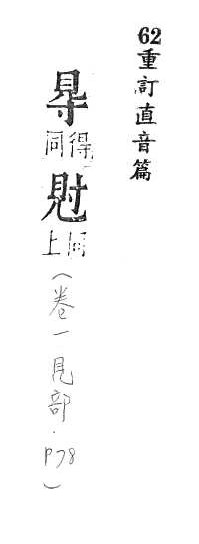 62重訂直音篇
䙷
得同
同上
（卷一見部．P78）